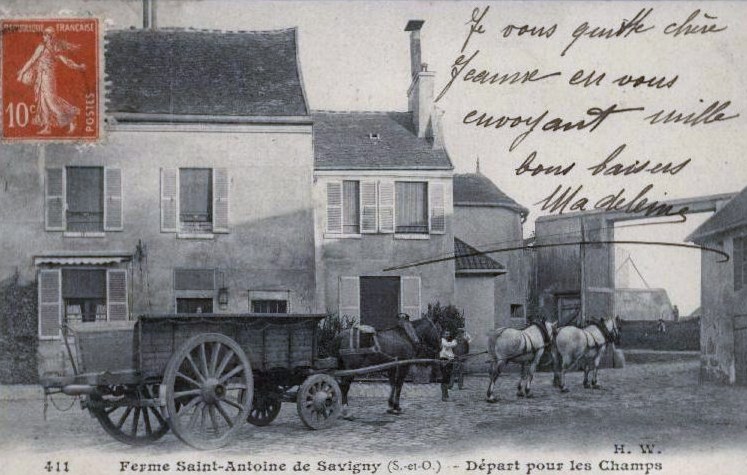 RÉPUBLIQUE FRANÇAISE
10c
POSTES
Je vous quitte chère
Jeanne en vous
envoyant mille
bons baisers
Madeleine
H. W.
411 Ferme Saint-Antoine de Savigny (S.-et-O.) - Départ pour les Champs